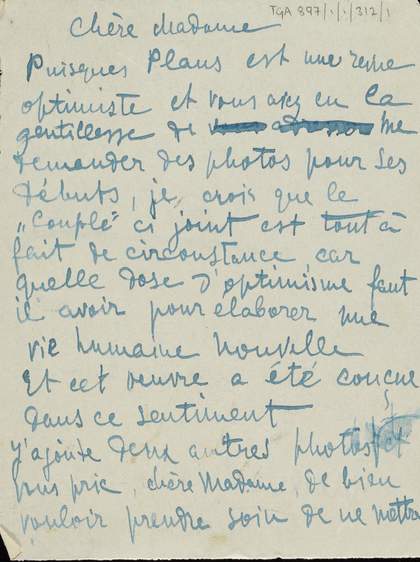 TGA 897/1/1/312/1
Chère Madame
Puisques Plans est une revue
optimiste et vous avez eu la
gentillesse de me
demander des photos pour ses
débuts, je crois que le
„Couple" ci joint est tout à
fait de circonstance car
quelle dose d'optimisme faut
il avoir pour élaborer une
vie humaine nouvelle
Et cet oeuvre a été conçue
dans ce sentiment
j'ajoute deux autres photos et
vous prie, chère Madame, de bien
vouloir prendre soin de ne mettre